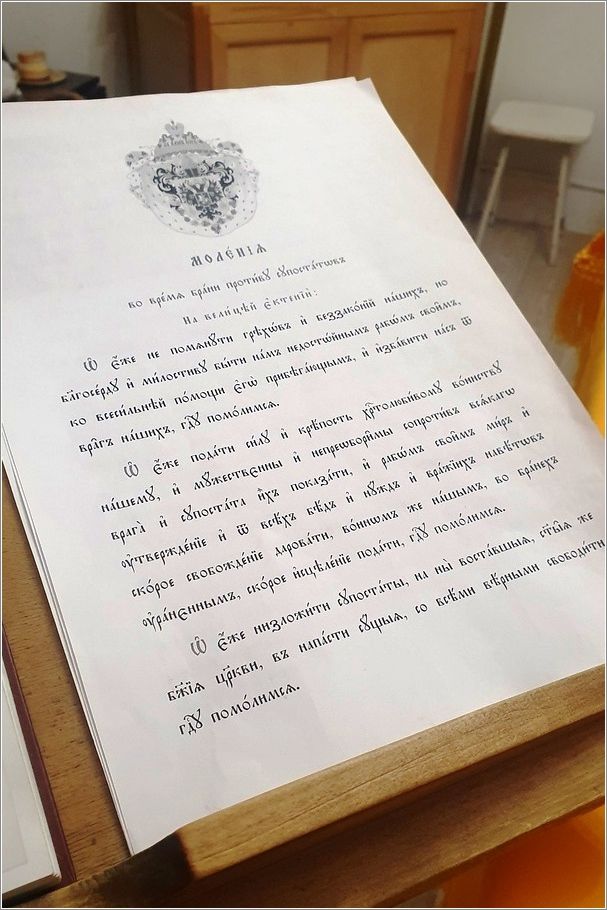 МОЛЕ́НІѦ
во вре́мѧ бра́ни проти́вꙋ сꙋпоста́тѡвъ
На вели́цѣй є҆ктенїѝ:
Ѡ҆ є҆́же не помѧнꙋ́ти грѣхѡ́въ и҆ беззако́нїй на́шихъ, но
бл҃госе́рдꙋ и҆ ми́лостивꙋ бы́ти на́мъ недостѡ́йнымъ рабѡ́мъ свои̑мъ,
ко всеси́льнѣй по́мощи є҆гѡ̀ прибѣга́ющымъ, и҆ и҆зба́вити на́съ ѿ
вра̑гъ на́шихъ, гдⷭ҇ꙋ помо́лимсѧ.
Ѡ҆ є҆́же пода́ти си́лꙋ и҆ крѣ́пость хрⷭ҇толюби́вомꙋ во́инствꙋ
на́шемꙋ, и҆ мꙋ́жественны и҆ непрешвори̑мы сопроти́въ всѧ́кагѡ
врага̀ и҆ сꙋпоста́та и҆̀хъ показа́ти, и҆ рабѡ́мъ свои̑мъ ми́ръ и҆
ᲂу҆твержде́нїе и҆ ѿ всѣ́хъ бѣ́дъ и҆ нꙋ́ждъ и҆ вра́жїихъ навѣ́тѡвъ
ско́рое свобожде́нїе дарова́ти, во́инѡмъ же на́шымъ, во бра́нехъ
ᲂу҆ра́нєннымъ, ско́рое и҆сцѣле́нїе пода́ти, гдⷭ҇ꙋ помо́лимсѧ.
Ѡ҆ є҆́же низложи́ти сꙋпоста́ты, на ны̀ воста́вшыѧ, ст҃ы̑ѧ же
бж҃їѧ цр҃кви, въ напа́сти сꙋ́щыѧ, со всѣ́ми вѣ́рными свободи́ти
гдⷭ҇ꙋ помо́лимсѧ.